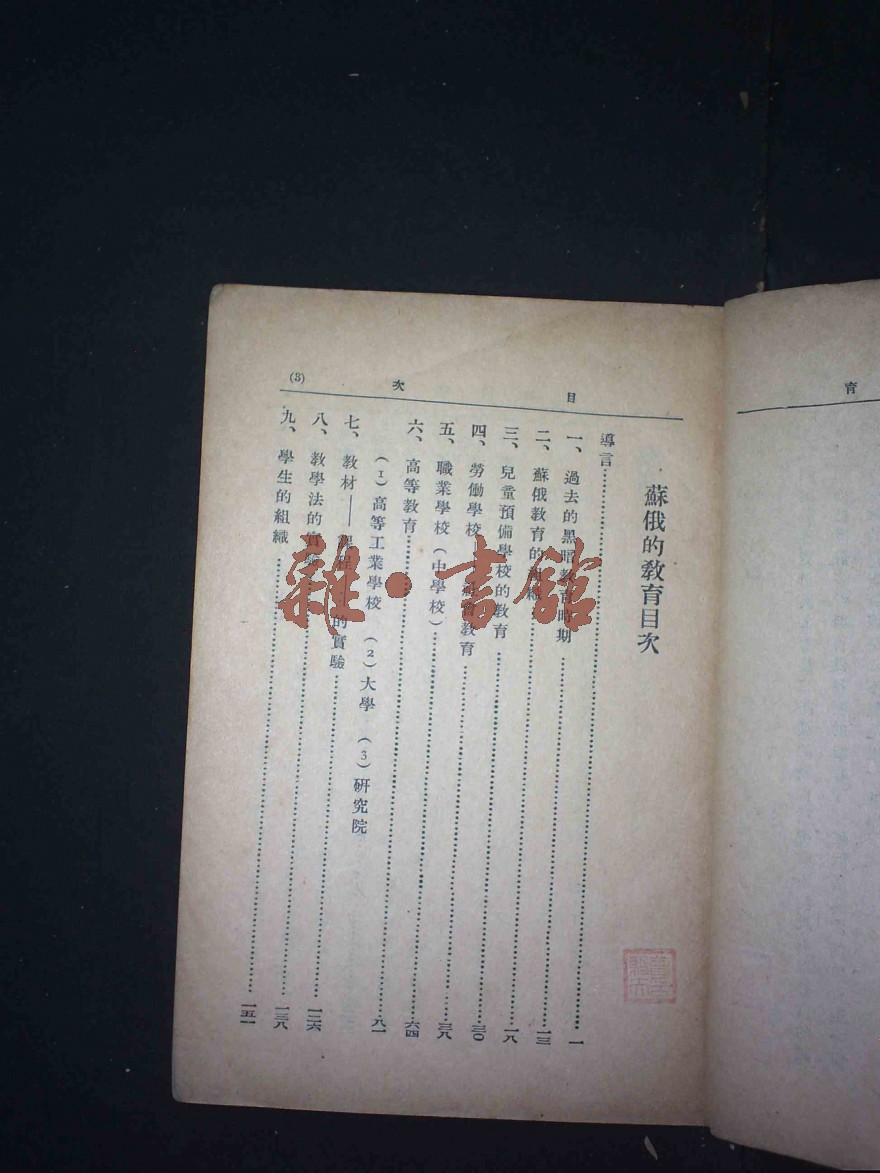 育
目次 (3)
蘇俄的教育目次
導言……一
一、過去的黑暗教育時期……一三
二、蘇俄教育的組織……一八
三、兒童預備學校的教育……三〇
四、勞働學校 教育……三八
五、職業學校（中學校）……六四
六、高等教育……八一
（1）高等工業學校 （2）大學 （3）研究院
七、教材——課程 的實驗……一二六
八、教學法的實驗……一三八
九、學生的組織……一五一
雜·書館